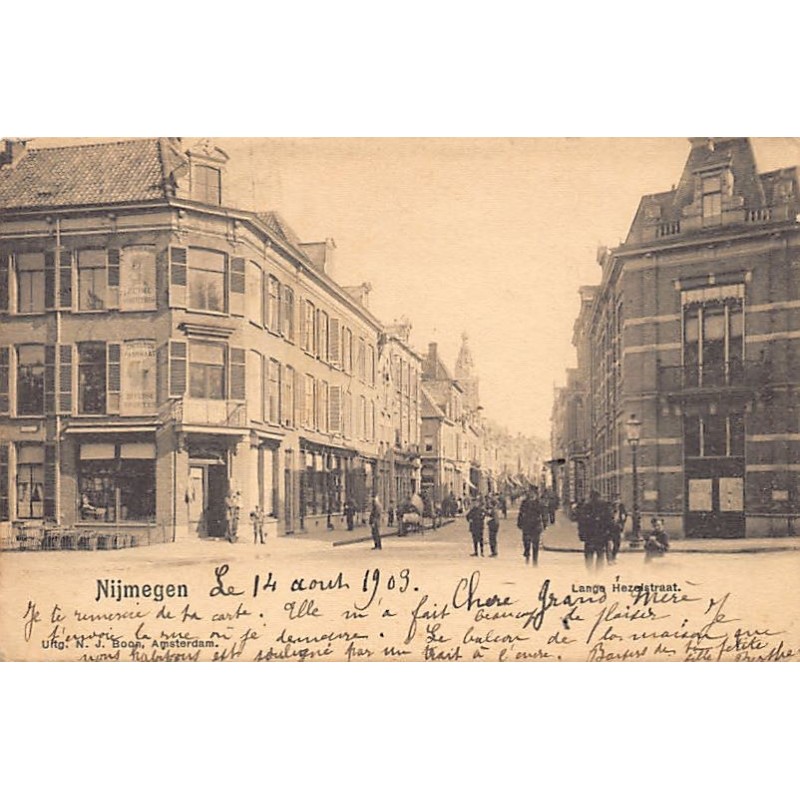 Nijmegen
Le 14 aout 1903.
Lange Hezelstraat.
Chère Grand Mère
Je te remercie de ta carte. Elle m'a fait beaucoup de plaisir Je
t'envoie la rue où je demeure. Le balcon de la maison que
Uitg. N. J. Boon, Amsterdam.
nous habitons est souligné par un trait à l'encre. Baisers de ta petite
fille Berthe